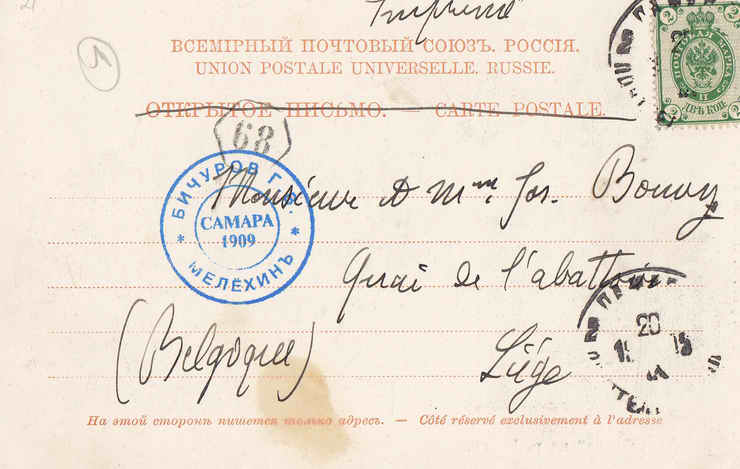 Imprimé
1
ВСЕМІРНЫЙ ПОЧТОВЫЙ СОЮЗЪ. РОССІЯ.
UNION POSTALE UNIVERSELLE. RUSSIE.
ОТКРЫТОЕ ПИСЬМО. — CARTE POSTALE.
2 ПОЧТОВАЯ МАРКА 2
ДВѢ КОП.
68
БИЧУРОВ Г.
САМАРА
1909
МЕЛЁХИНЪ
Monsieur & Mme Jos. Bouvy
Quai de l'abattoir
(Belgique)
Liége
20
На этой сторонѣ пишется только адресъ. — Côté réservé exclusivement à l'adresse